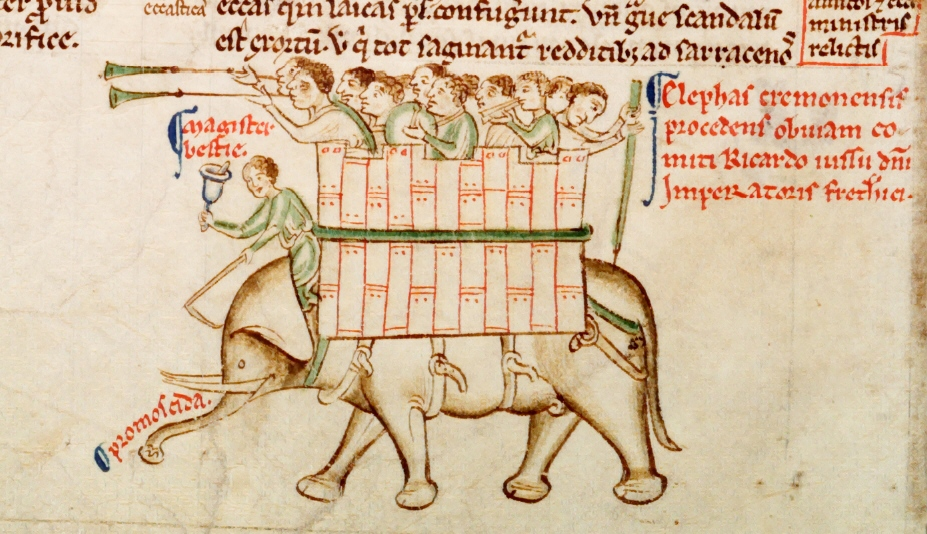 orifice.
confugiunt. Vn̄ gͥue scandalū
est exortū. V q̄ tot saginant̉ redditibꝫ ad sarracenos
ministris
relictis
Magister
bestie.
Elephas cremonensis
procedens obuiam co
miti Ricardo iussu dn̄i
Imperatoris frethici.
promoscida.